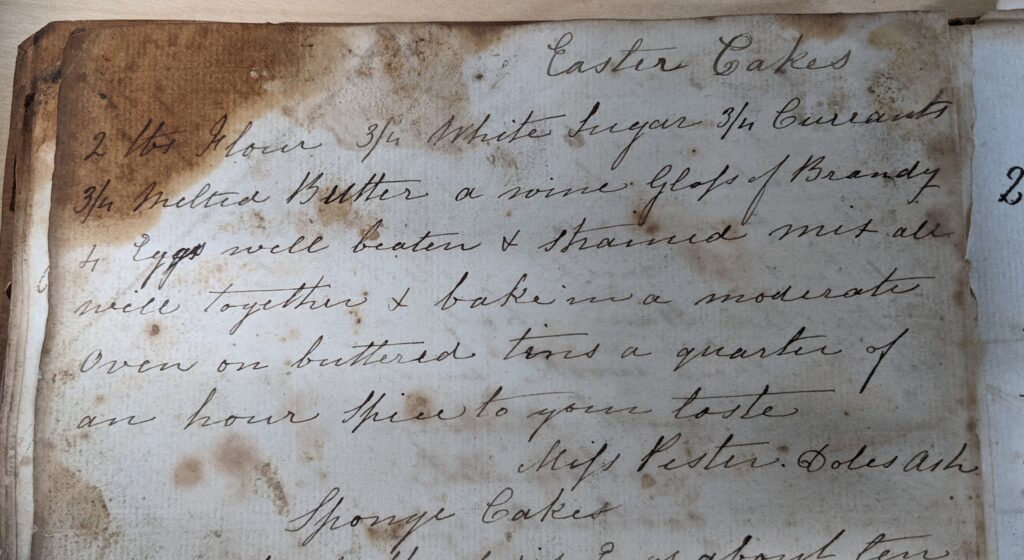 Easter Cakes
2 lbs Flour 3/4 White Sugar 3/4 Currants
3/4 Melted Butter a wine Glaſs of Brandy
4 Eggs well beaten & strained mix all
well together & bake in a moderate
Oven on buttered tins a quarter of
an hour Spice to your taste
Miſs Pester. Doles Ash
Sponge Cakes
Eggs about ten
2